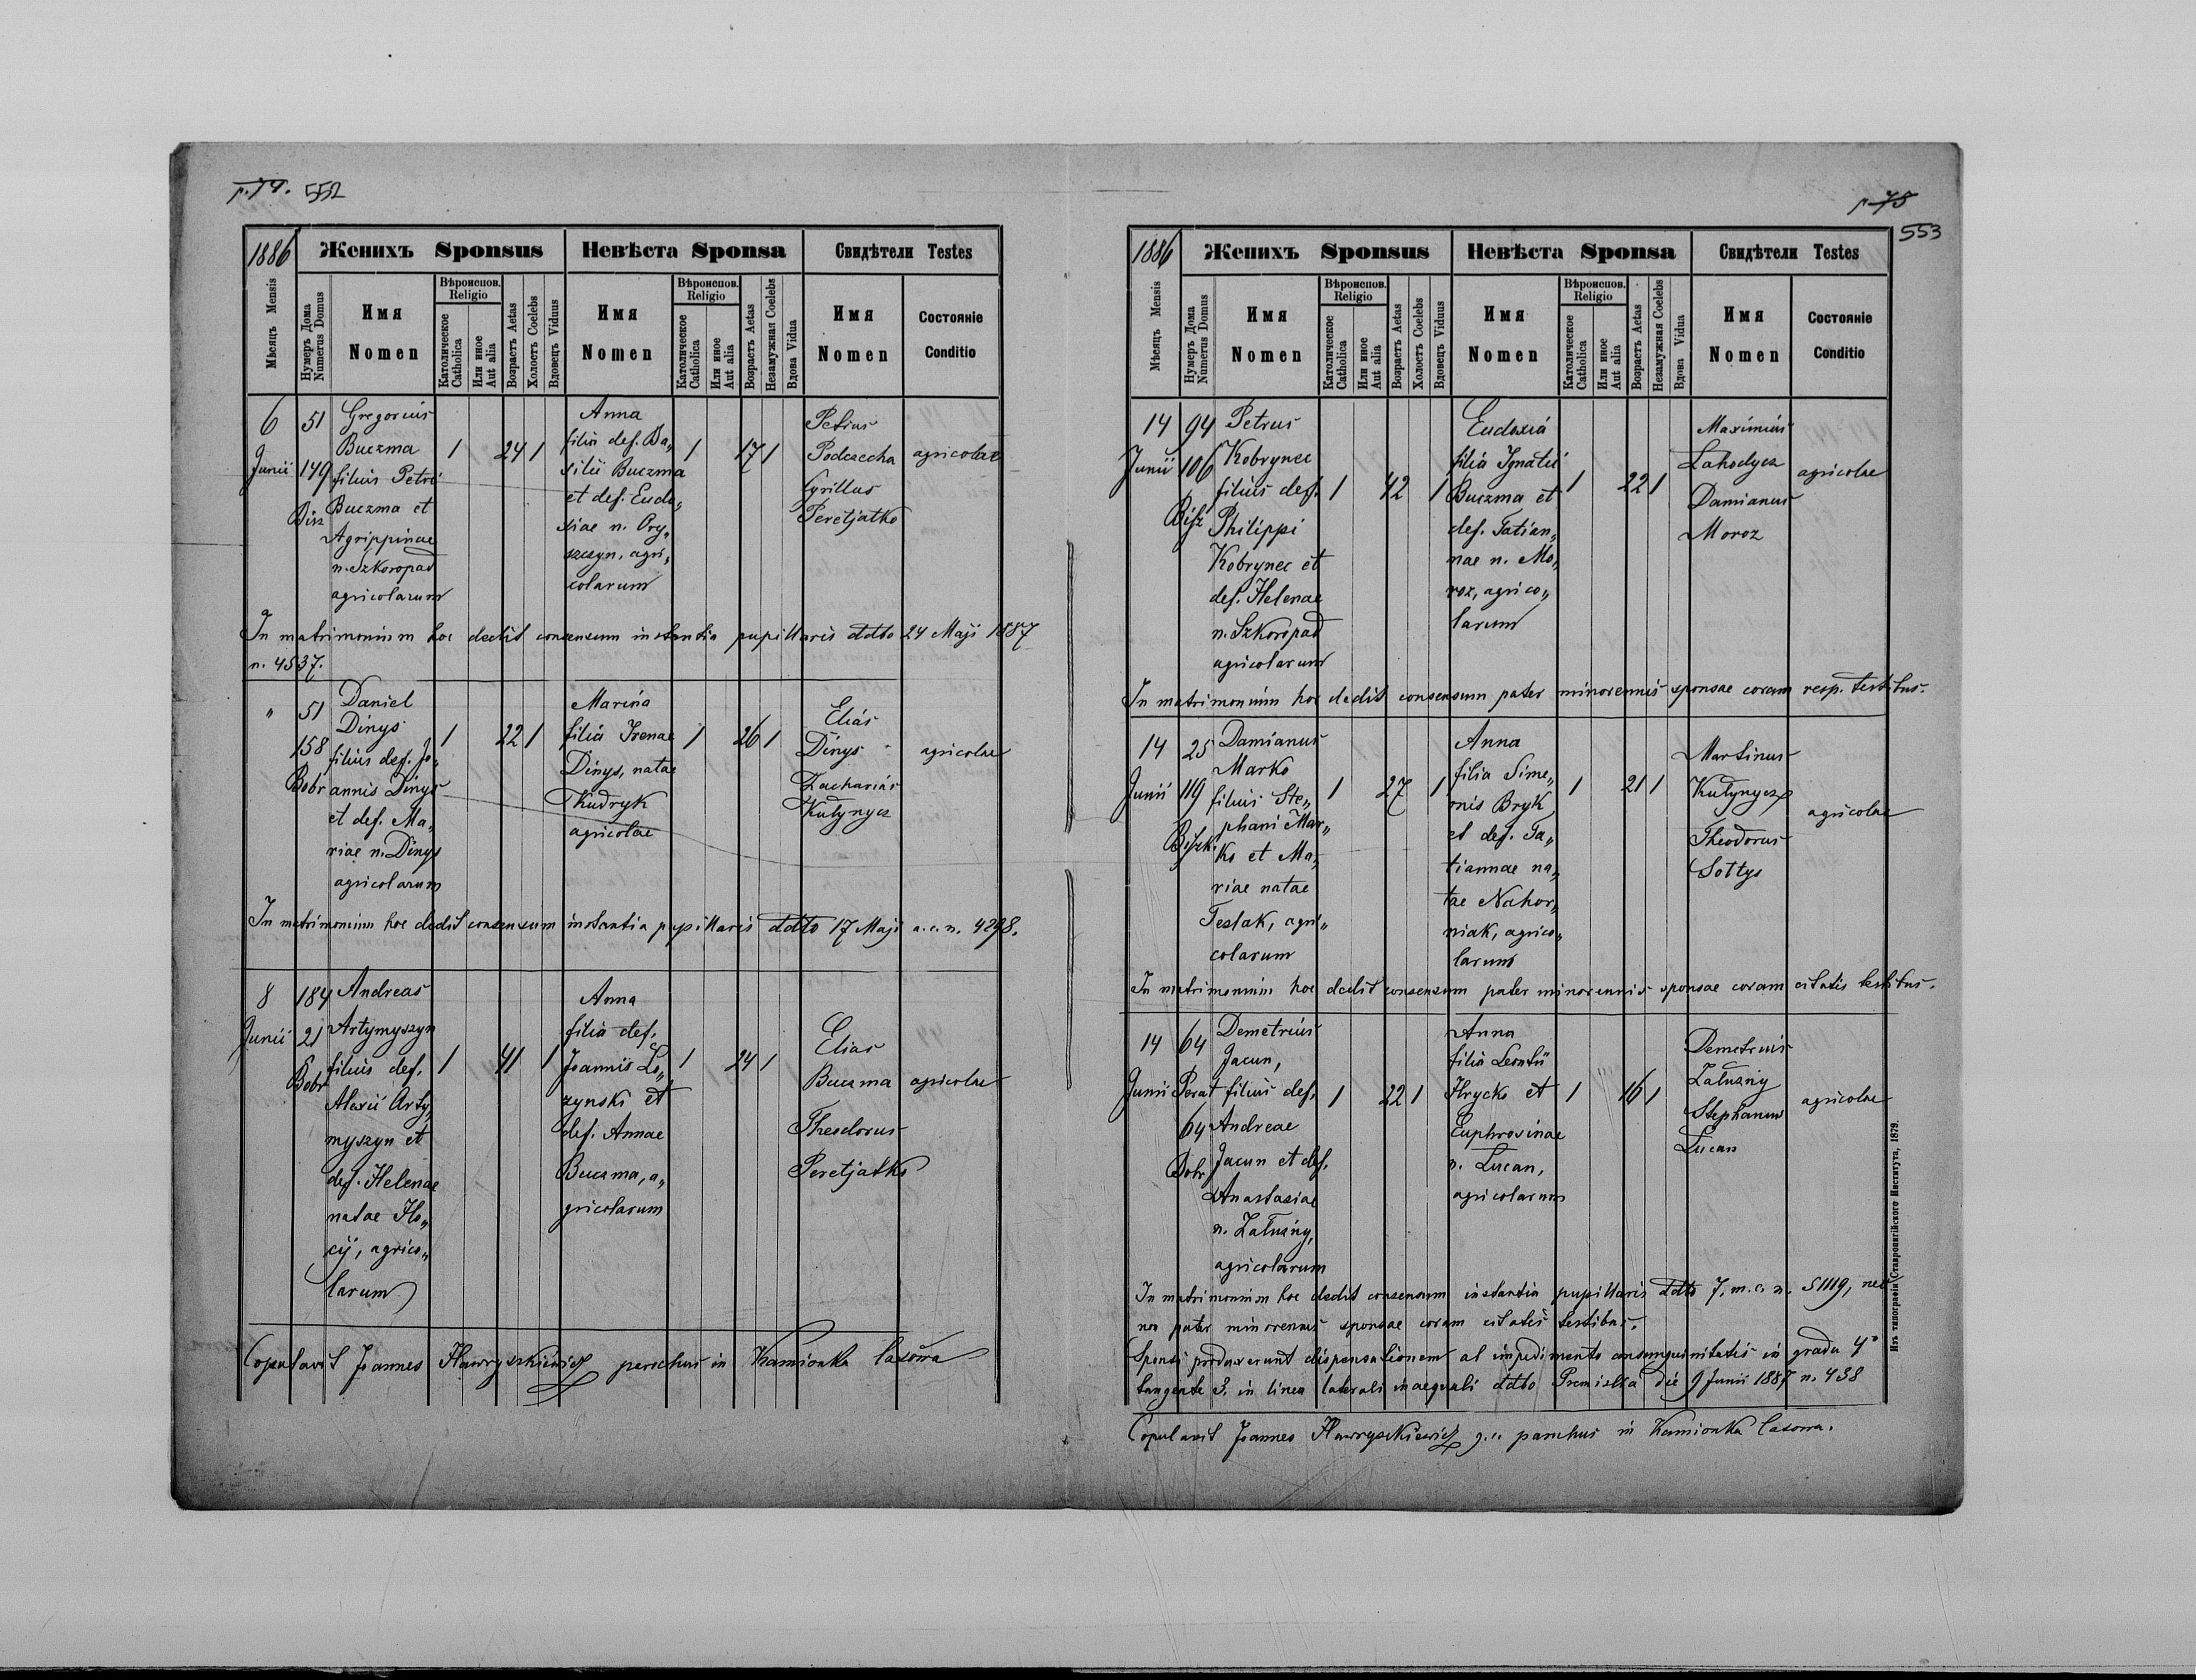 p. 74. 552
1886 Женихъ Sponsus Невѣста Sponsa Свидѣтели Testes
Мѣсяцъ Mensis
Нумеръ Дома Numerus Domus
Имя Nomen
Вѣроиспов. Religio
Католическое Catholica
Или иное Aut alia
Возрастъ Aetas
Холостъ Coelebs
Вдовецъ Viduus
Имя Nomen
Вѣроиспов. Religio
Католическое Catholica
Или иное Aut alia
Возрастъ Aetas
Незамужная Coelebs
Вдова Vidua
Имя Nomen
Состояніе Conditio
6 Junii
51
149
Bisz
Gregorius
Buczma
filius Petri
Buczma et
Agrippinae
n. Szkoropad
agricolarum
1 24 1
Anna
filia def. Ba„
silii Buczma
et def. Eudo„
xiae n. Ory„
szczyn, agri„
colarum
1 17 1
Petrus
Podczecha
Cyrillus
Peretjatko
agricolae
In matrimonium hoc dedit consensum instantia pupillaris ddto 24 Maji 1887
n. 4537.
"
51
158
Bobr
Daniel
Dinys
filius def. Jo„
annis Dinys
et def. Ma„
riae n. Dinys
agricolarum
1 22 1
Marina
filia Irenae
Dinys, natae
Kudryk
agricolae
1 26 1
Elias
Dinys
Zacharias
Kułynycz
agricolae
In matrimonium hoc dedit consensum instantia pupillaris ddto 17 Maji a.c. n. 4298.
8 Junii
184
21
Bobr
Andreas
Artymyszyn
filius def.
Alexii Arty
myszyn et
def. Helenae
natae Ho„
cij, agrico„
larum
1 41 1
Anna
filia def.
Joannis Lo„
zynski et
def. Annae
Buczma, a„
gricolarum
1 24 1
Elias
Buczma
Theodorus
Peretjatko
agricolae
Copulavit Joannes Hawryszkiewicz parochus in Kamionka lasowa
p. 75
553
1886 Женихъ Sponsus Невѣста Sponsa Свидѣтели Testes
Мѣсяцъ Mensis
Нумеръ Дома Numerus Domus
Имя Nomen
Вѣроиспов. Religio
Католическое Catholica
Или иное Aut alia
Возрастъ Aetas
Холостъ Coelebs
Вдовецъ Viduus
Имя Nomen
Вѣроиспов. Religio
Католическое Catholica
Или иное Aut alia
Возрастъ Aetas
Незамужная Coelebs
Вдова Vidua
Имя Nomen
Состояніе Conditio
14 Junii
94
106
Bisz
Petrus
Kobrynec
filius def.
Philippi
Kobrynec et
def. Helenae
n. Szkoropad
agricolarum
1 42 1
Eudoxia
filia Ignatii
Buczma et
def. Tatian„
nae n. Mo„
roz, agrico„
larum
1 22 1
Maximus
Lahodycz
Damianus
Moroz
agricolae
In matrimonium hoc dedit consensum pater minorennis sponsae coram resp. testibus.
14 Junii
25
119
Biszk.
Damianus
Marko
filius Ste„
phani Mar„
ko et Ma„
riae natae
Teslak, agri„
colarum
1 27 1
Anna
filia Sime„
onis Bryk
et def. Ta„
tiannae na„
tae Nahor„
niak, agrico„
larum
1 21 1
Martinus
Kułynycz
Theodorus
Sołtys
agricolae
In matrimonium hoc dedit consensum pater minorennis sponsae coram citatis testibus.
14 Junii
64
Porat
64
Bobr
Demetrius
Jacun,
filius def.
Andreae
Jacun et def.
Anastasiae
n. Załuzny,
agricolarum
1 22 1
Anna
filia Leontii
Hrycko et
Euphrosinae
n. Lucan,
agricolarum
1 16 1
Demetrius
Załuzny
Stephanus
Lucan
agricolae
In matrimonium hoc dedit consensum instantia pupillaris ddto 7. m.c. n. 51119, nec
non pater minorennis sponsae coram citatis testibus.
Sponsi produxerunt dispensationem ab impedimento consanguinitatis in gradu 4°
tangente 3. in linea laterali inaequali ddto Premisliae die 9 Junii 1887 n. 438
Copulavit Joannes Hawryszkiewicz g.c. parochus in Kamionka lasowa.
Изъ типографіи Ставропигійского Института, 1879.